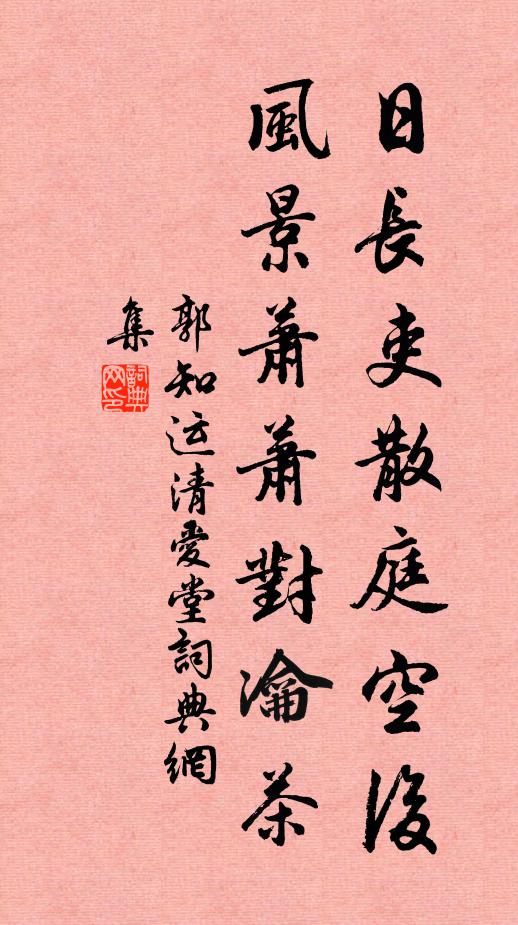 日長吏散庭空後
風景蕭蕭對瀹茶
郭知运清愛堂詞典網
集
詞典网印